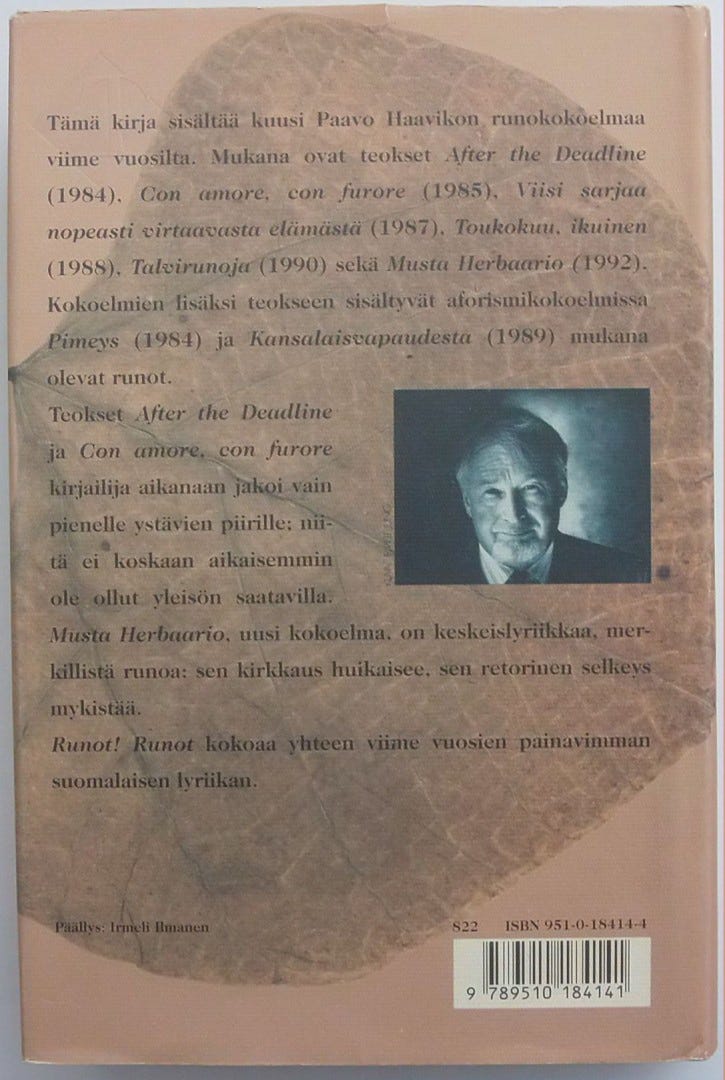 Tämä kirja sisältää kuusi Paavo Haavikon runokokoelmaa
viime vuosilta. Mukana ovat teokset After the Deadline
(1984), Con amore, con furore (1985), Viisi sarjaa
nopeasti virtaavasta elämästä (1987), Toukokuu, ikuinen
(1988), Talvirunoja (1990) sekä Musta Herbaario (1992).
Kokoelmien lisäksi teokseen sisältyvät aforismikokoelmissa
Pimeys (1984) ja Kansalaisvapaudesta (1989) mukana
olevat runot.
Teokset After the Deadline
ja Con amore, con furore
kirjailija aikanaan jakoi vain
pienelle ystävien piirille; nii-
tä ei koskaan aikaisemmin
ole ollut yleisön saatavilla.
Musta Herbaario, uusi kokoelma, on keskeislyriikkaa, mer-
killistä runoa: sen kirkkaus huikaisee, sen retorinen selkeys
mykistää.
Runot! Runot kokoaa yhteen viime vuosien painavimman
suomalaisen lyriikan.
Päällys: Irmeli Ilmanen
822 ISBN 951-0-18414-4
9 789510 184141